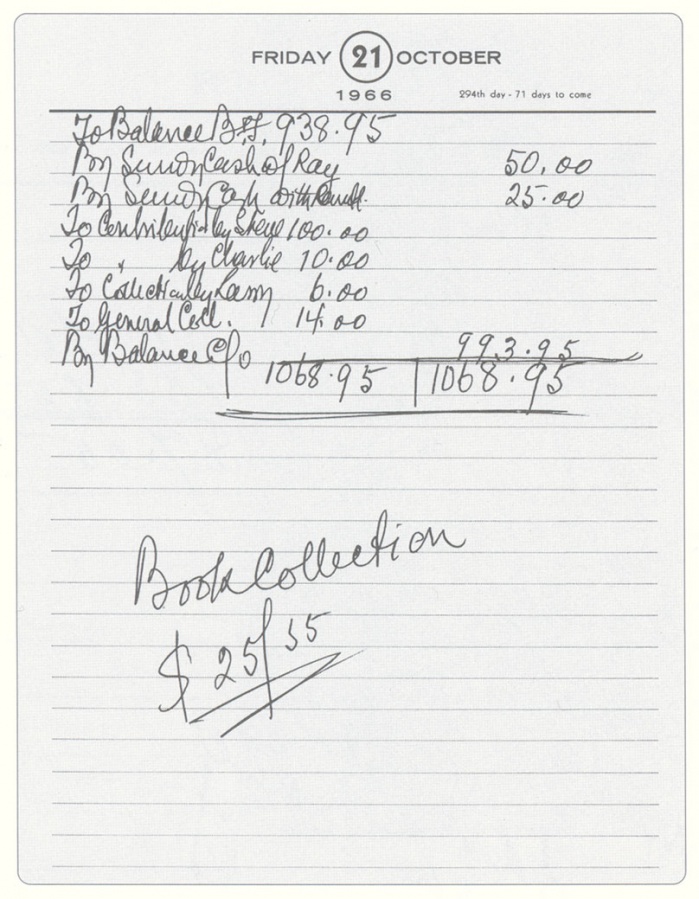 FRIDAY 21 OCTOBER
1966
294th day - 71 days to come
To Balance B.F. 938.95
By Sundry Cash of Ray 50.00
By Sundry Cash 25.00
To Contribution by Steve 100.00
To " by Charlie 10.00
To Collection by 6.00
To General Coll. 14.00
By Balance C/o 993.95
1068.95 1068.95
Book Collection
$ 25/35